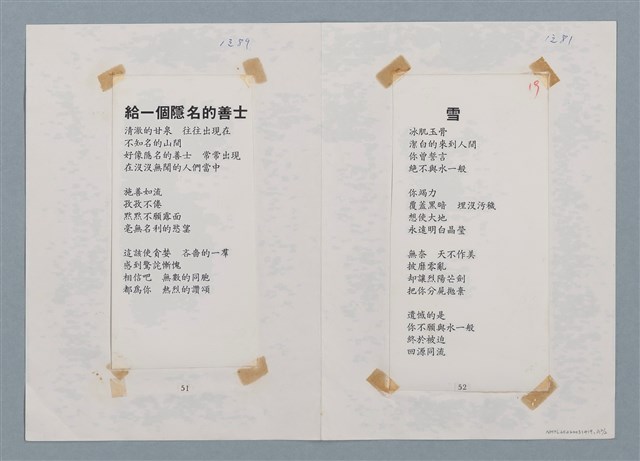 給一個隱名的善士
清澈的甘泉　往往出現在
不知名的山間
好像隱名的善士　常常出現
在沒沒無聞的人們當中
施善如流
孜孜不倦
默默不願露面
毫無名利的慾望
這該使貪婪　吝嗇的一羣
感到驚詫慚愧
相信吧　無數的同胞
都爲你　熱烈的讚頌
51
19
雪
冰肌玉骨
潔白的來到人間
你曾誓言
絕不與水一般
你竭力
覆蓋黑暗　埋沒污穢
想使大地
永遠明白晶瑩
無奈　天不作美
披靡零亂
却讓烈陽芒劍
把你分屍拋棄
遺憾的是
你不願與水一般
終於被迫
回源同流
52